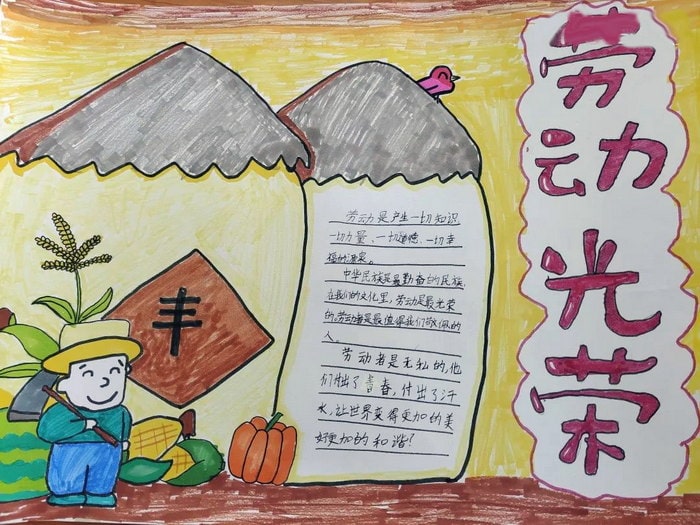 劳动光荣
丰
劳动是产生一切知识
一切力量、一切道德、一切幸
福的源泉。
中华民族是最勤奋的民族,
在我们的文化里,劳动是最光荣
的,劳动者是最值得我们敬佩的
人
劳动者是无私的,他
们付出了青春,付出了汗
水,让世界变得更加的美
好更加的和谐!